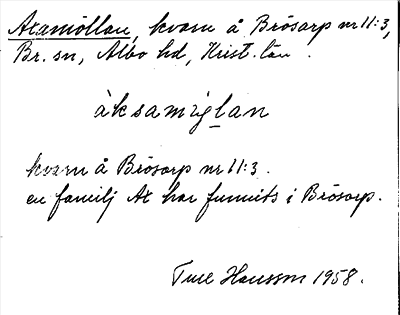 Axamöllan, kvarn å Brösarp nr 11:3,
Br. sn, Albo hd, Krist. län.
kvarn å Brösarp nr 11:3.
en familj Ax har funnits i Brösarp.
Ture Hansson 1958.